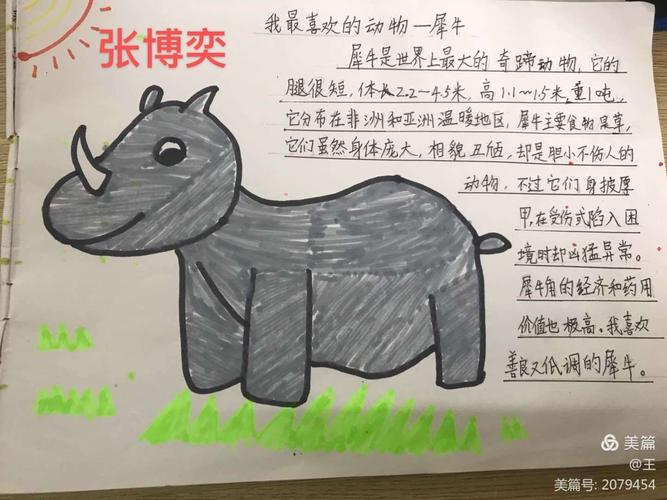 我最喜欢的动物—犀牛
张博奕
犀牛是世界上最大的奇蹄动物，它的
腿很短，体长2.2～4.5米，高1.1～1.5米，重1吨，
它分布在非洲和亚洲温暖地区，犀牛主要食物是草，
它们虽然身体庞大，相貌丑陋，却是胆小不伤人的
动物，不过它们身披厚
甲，在受伤式陷入困
境时却凶猛异常。
犀牛角的经济和药用
价值也极高。我喜欢
善良又低调的犀牛。
美篇
@王
美篇号: 2079454